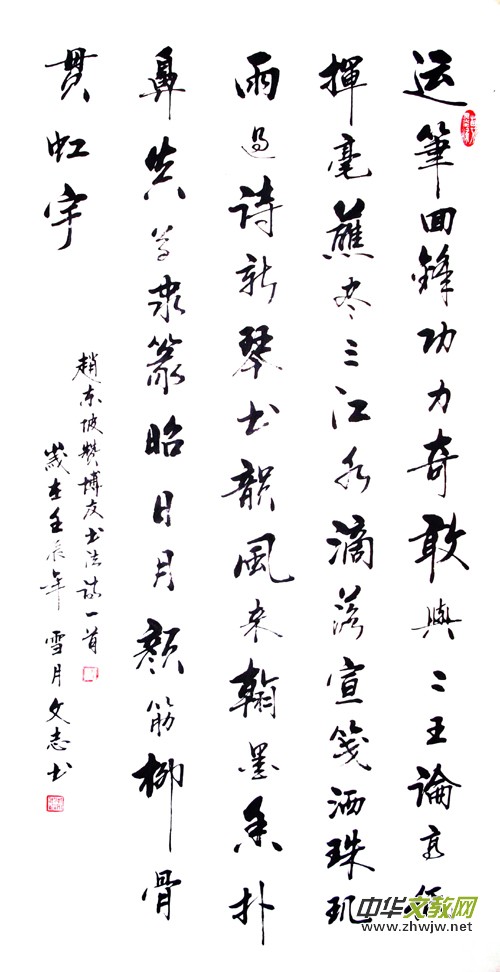 运筆回鋒功力奇敢與二王論高低
揮毫蘸尽三江水滴落宣箋洒珠玑
雨过詩新琴书韻風来翰墨香扑
鼻真草隶篆昭日月顏筋柳骨
贯虹宇
趙东坡贊博友书法诗一首
歲在壬辰年 雪月文志书
中华文教网
www.zhwjw.net